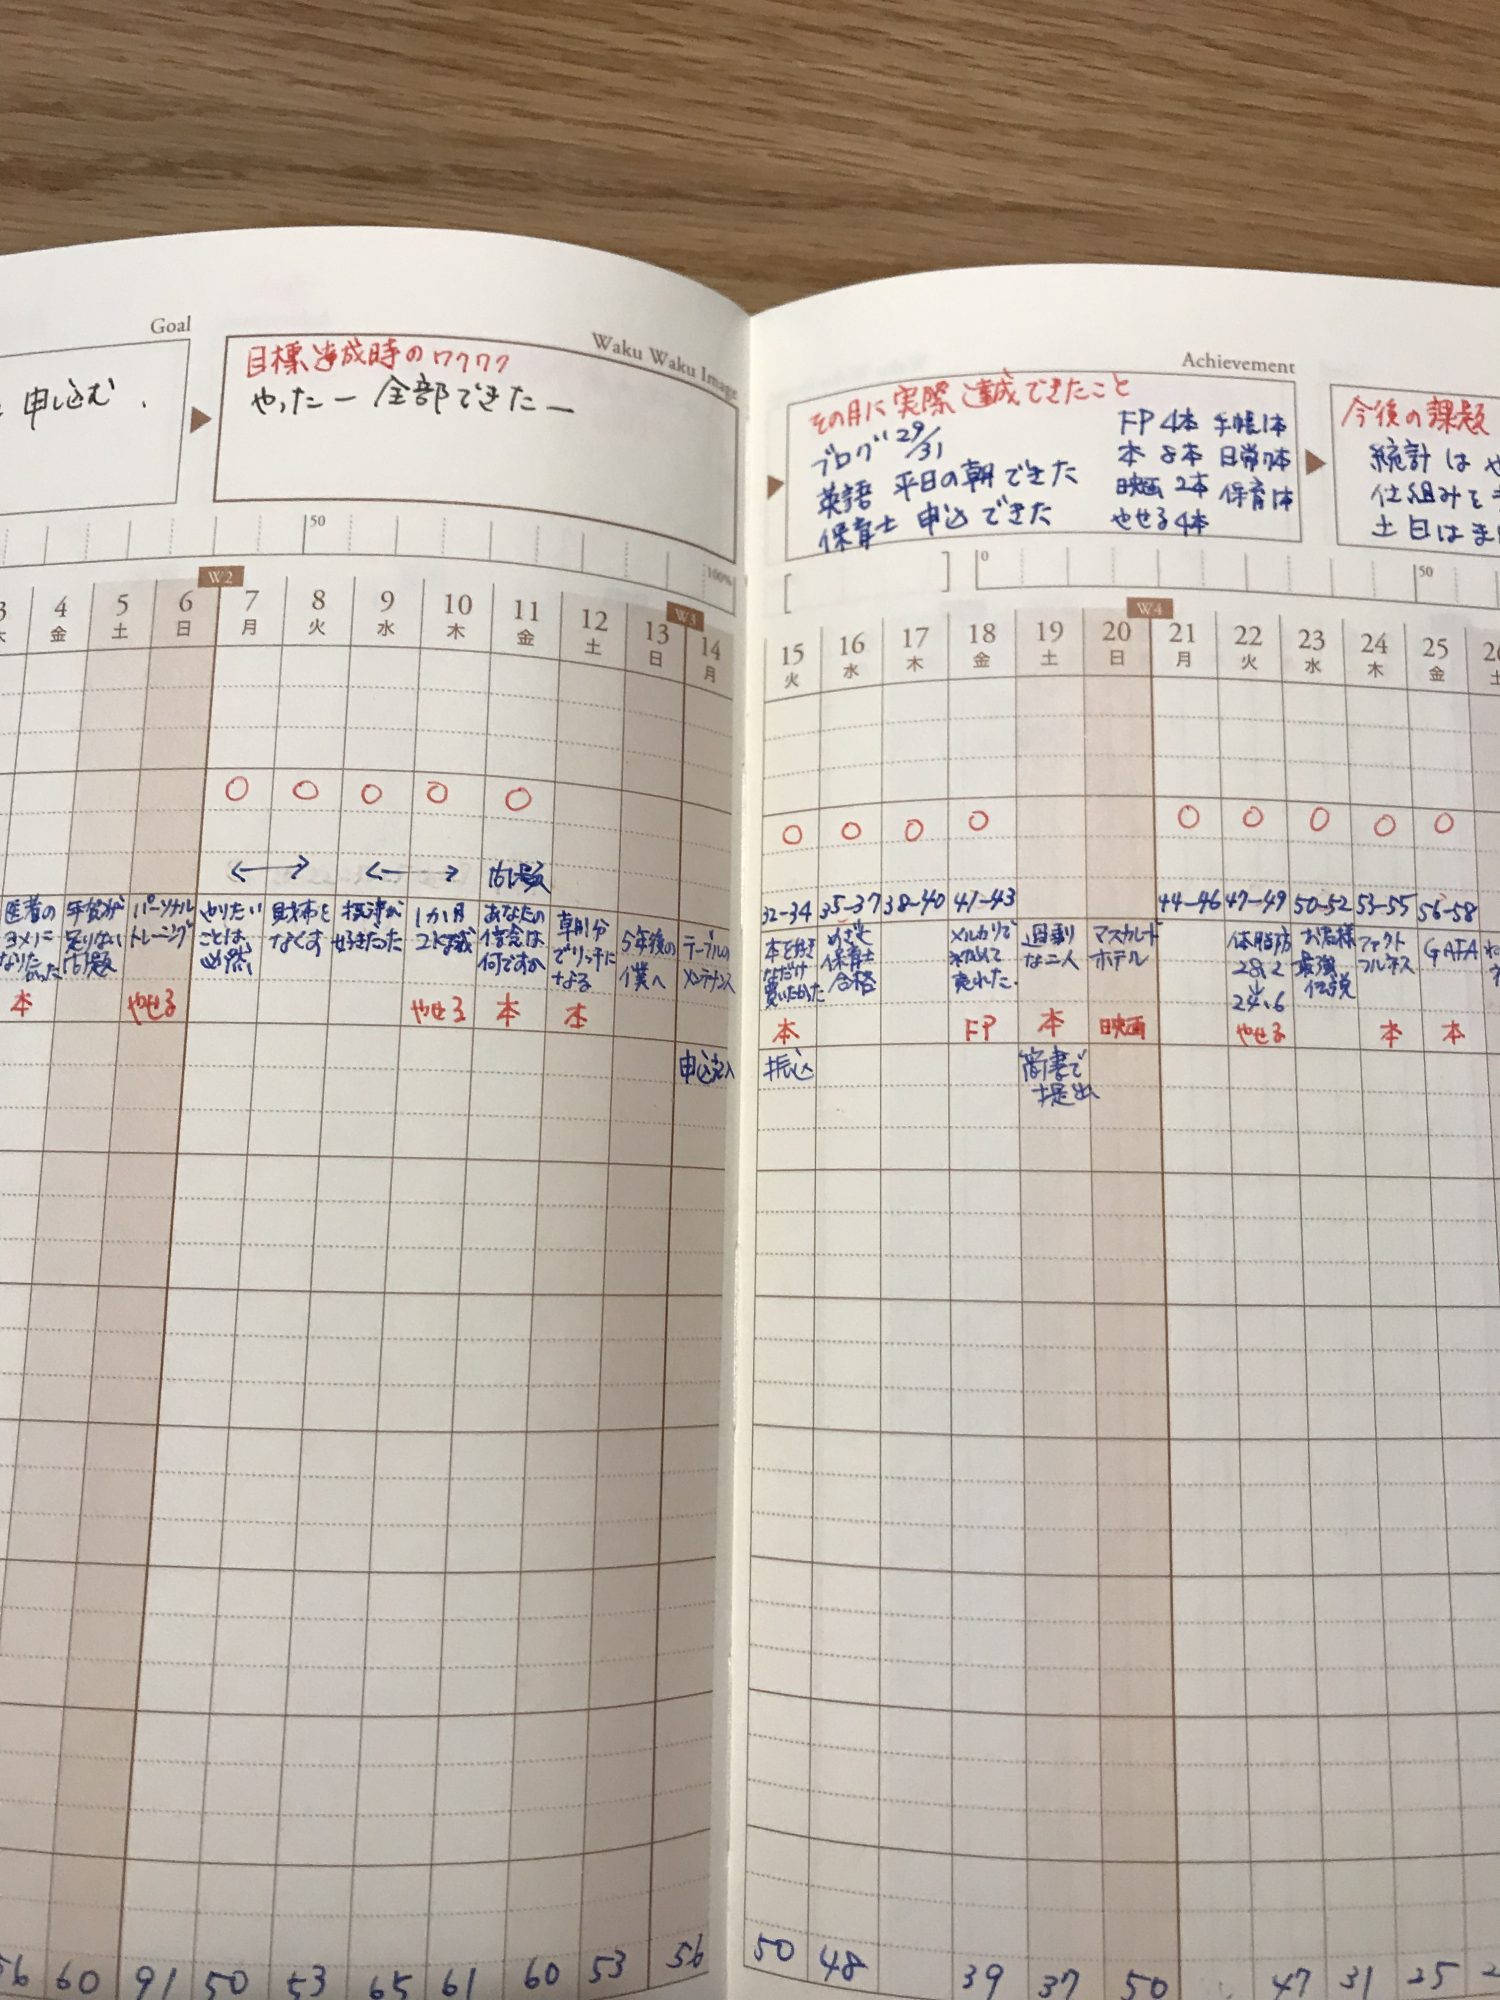 Goal
申し込む、
Waku Waku Image
目標達成時のワクワク
やったー 全部できたー
50
100%
W2
W3
3 4 5 6 7 8 9 10 11 12 13 14
木 金 土 日 月 火 水 木 金 土 日 月
○ ○ ○ ○ ○
問題
医者の
ヨメに
なりたかった
年金が
足りない
問題
パーソナル
トレーニング
やりたい
ことは、
必然
財布を
なくす
好きだった
1か月
あなたの
信念は
何ですか
朝1分
でリッチに
なる
5年後の
僕へ
テーブルの
メンテナンス
本 やせる やせる 本 本
申込記入
56 60 91 50 53 65 61 60 53 56
Achievement
その月に実際達成できたこと
ブログ 29/31
英語 平日の朝できた
保育士 申込できた
FP 4本 手帳1本
本 8本 日常7本
映画 2本 保育1本
やせる4本
今後の課題
統計は
仕組みを
土日は
0
50
W4
15 16 17 18 19 20 21 22 23 24 25
火 水 木 金 土 日 月 火 水 木 金 土
○ ○ ○ ○ ○ ○ ○ ○ ○
32-34 35-37 38-40 41-43 44-46 47-49 50-52 53-55 56-58
本を好き
なだけ
買いたかった
めざせ
保育士
合格
メルカリで
初めて
売れた.
週刊
な二人
マスカレード
ホテル
体脂肪
28.2
↓
24.6
お客様
最強
伝説
ファクト
フルネス
GAFA
本 FP 本 映画 やせる 本 本
振込
簡書で
提出
50 48 39 37 50 47 31 25